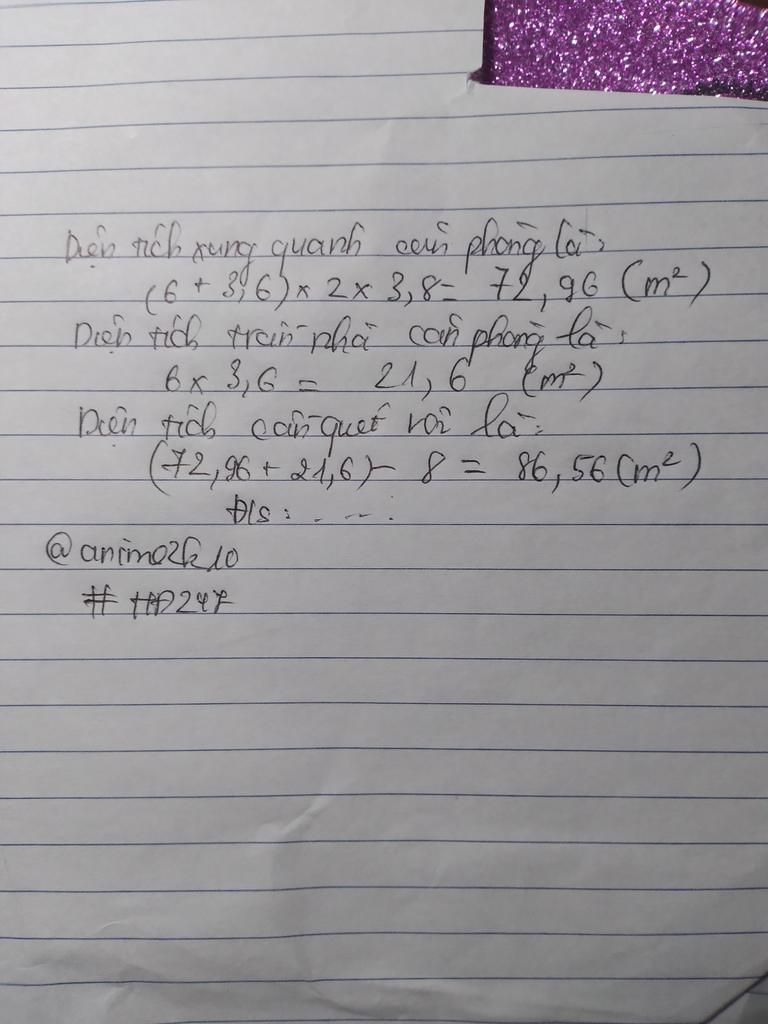 Diện tích xung quanh căn phòng là:
(6 + 3,6) x 2 x 3,8 = 72,96 (m²)
Diện tích trần nhà căn phòng là:
6 x 3,6 = 21,6 (m²)
Diện tích cần quét vôi là:
(72,96 + 21,6) - 8 = 86,56 (m²)
Đ/s: . . . . .
@anime2k10
# HĐ247